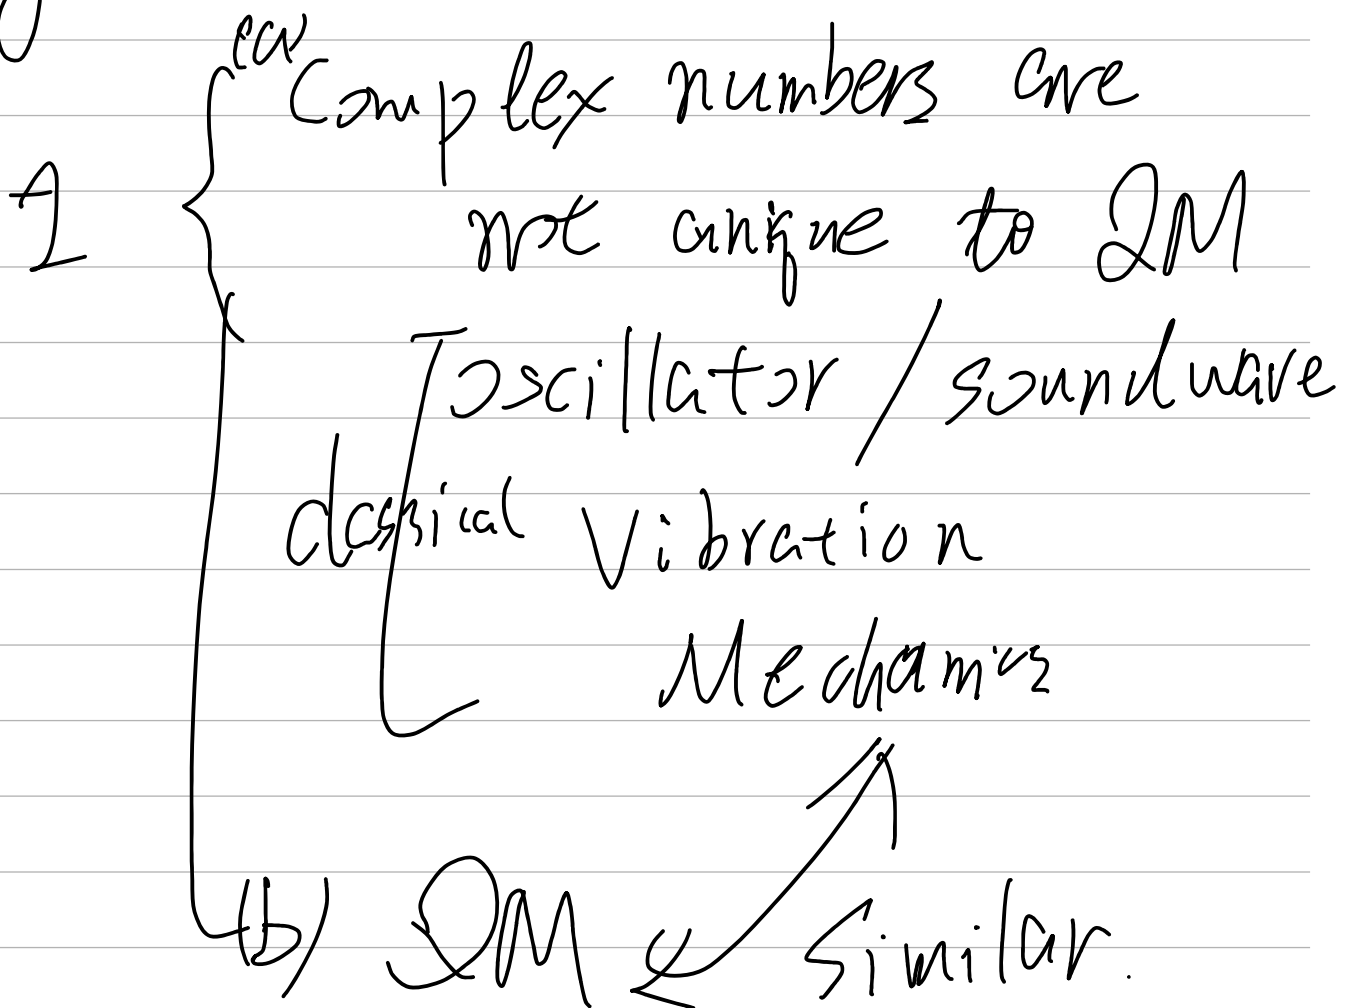 (a) Complex numbers are
1
not unique to QM
oscillator / soundwave
classical Vibration
Mechanics
(b) QM similar.